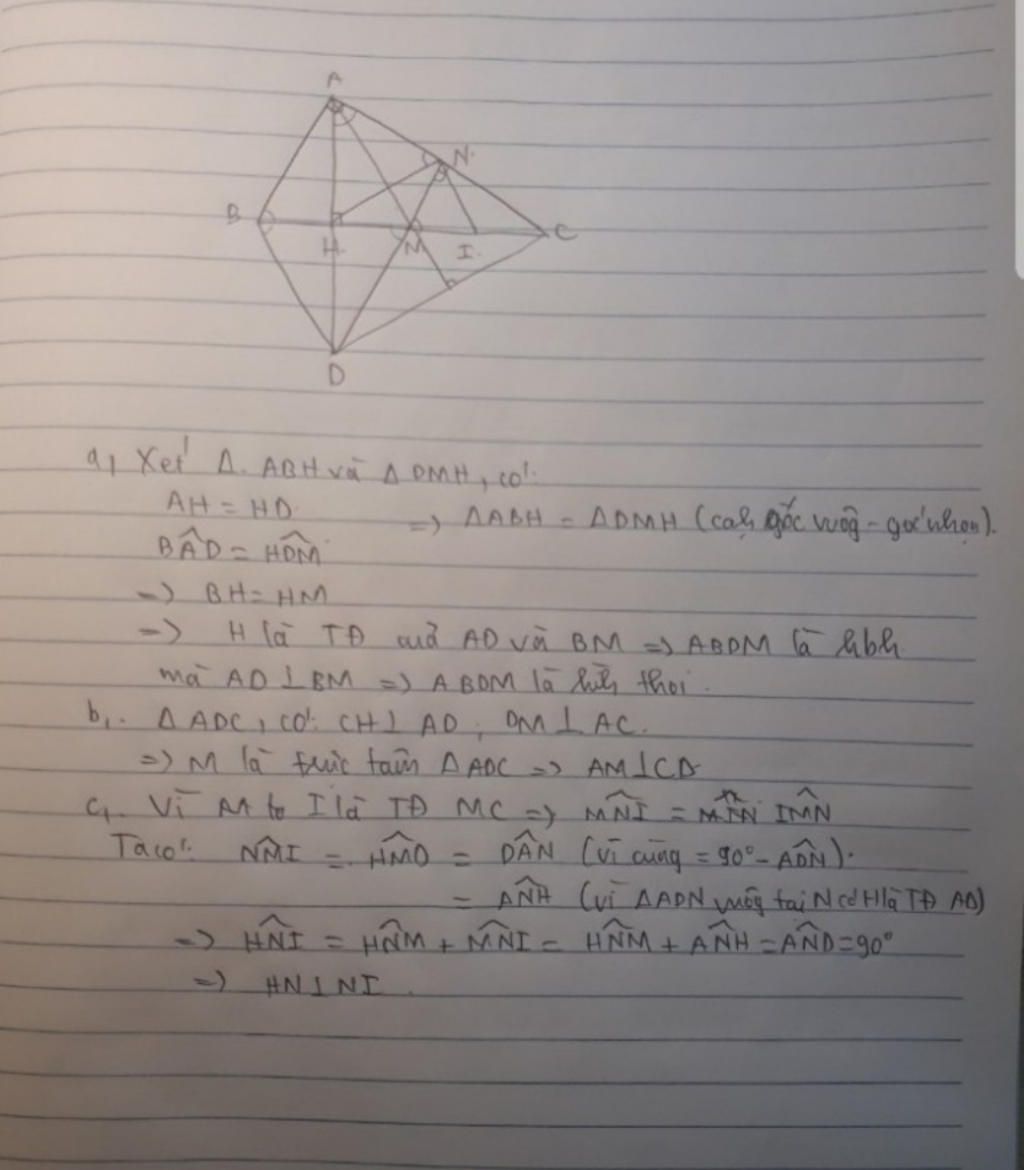 A
N.
B
H.
M
I.
C
D
a, Xét Δ. ABH và Δ DMH, có:
AH = HD.
=> ΔABH = ΔDMH (cạh góc vuôg - góc nhọn).
BÂD = HD̂M
=> BH = HM
=> H là TĐ của AD và BM => ABDM là hbh.
mà AD ⊥ BM => ABDM là hìh thoi.
b,. Δ ADC, có: CH ⊥ AD, DM ⊥ AC.
=> M là trực tâm Δ ADC => AM ⊥ CD
c, Vì I là TĐ MC => MN̂I = IM̂N
Ta có: NM̂I = HM̂D = DÂN (vì cùng = 90° - AD̂N).
= AN̂H (vì ΔADN vuôg tại N có H là TĐ AD)
=> HN̂I = HN̂M + MN̂I = HN̂M + AN̂H = AN̂D = 90°
=> HN ⊥ NI.